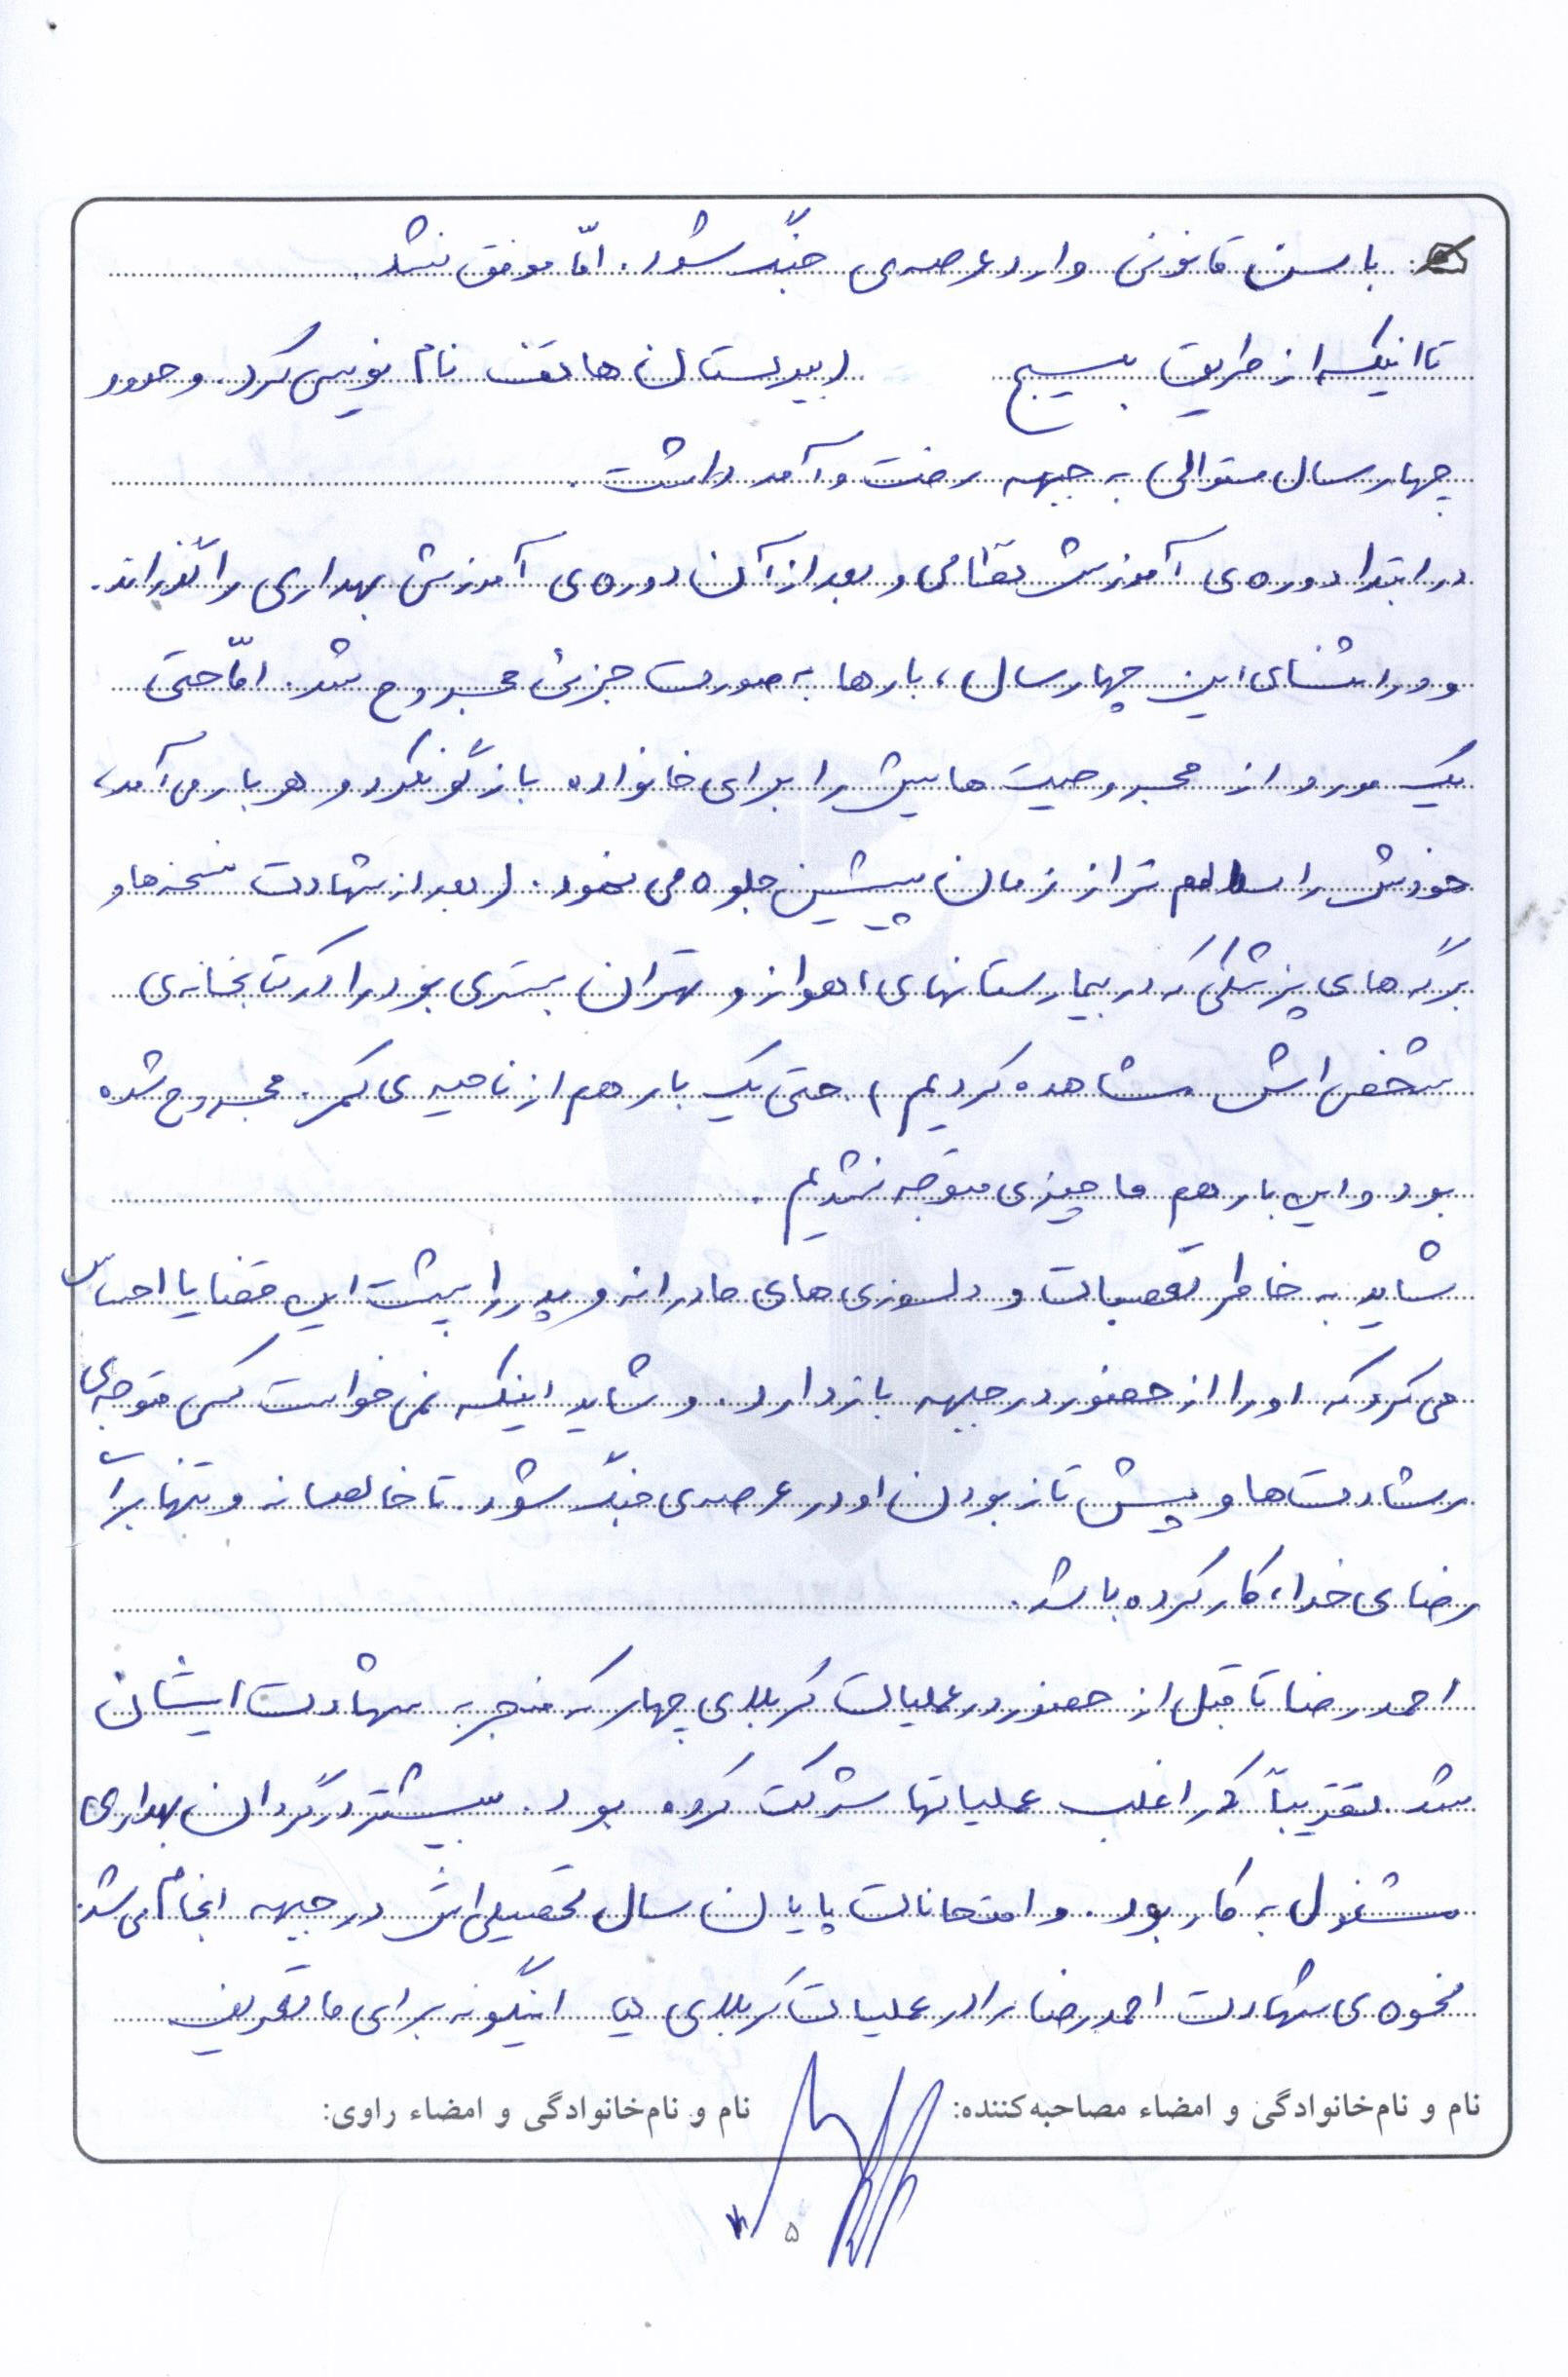 با سن قانونی وارد عرصه‌ی جنگ شود. امّا موفق نشد.
تا اینکه از طریق بسیج دبیرستان هاتف نام نویسی کرد. و حدود
چهار سال متوالی به جبهه رفت و آمد داشت.
در ابتدا دوره‌ی آموزش نظامی و بعد از آن دوره‌ی آموزش بهداری را گذراند.
و در اثنای این چهار سال، بارها به صورت جزئی مجروح شد. امّا حتی
یک مورد از مجروحیت هایش را برای خانواده بازگو نکرد و هر بار می‌آمد،
خودش را سالم تر از زمان پیشین جلوه می نمود. (بعد از شهادت نسخه‌ها و
برگه های پزشکی که در بیمارستانهای اهواز و تهران بستری بود را در کتابخانه‌ی
شخصی اش مشاهده کردیم). حتی یک بار هم از ناحیه‌ی کمر. مجروح شده
بود و این بار هم ما چیزی متوجه نشدیم.
شاید به خاطر تعصبات و دلسوزی های مادرانه و پدر را پشت این قضایا احساس
می کرد که او را از حضور در جبهه باز دارد. و شاید اینکه نمی خواست کسی متوجه‌ی
رشادت‌ها و پیش تاز بودن او در عرصه‌ی جنگ شود. تا خالصانه و تنها برای
رضای خدا، کار کرده باشد.
احمدرضا تا قبل از حضور در عملیات کربلای چهار که منجر به شهادت ایشان
شد. تقریباً در اغلب عملیاتها شرکت کرده بود. بیشتر در گردان بهداری
مشغول به کار بود. و امتحانات پایان سال تحصیلی‌اش در جبهه انجام می‌شد.
نحوه‌ی شهادت احمدرضا را در عملیات کربلای ۴ اینگونه برای ما تعریف
نام و نام‌خانوادگی و امضاء مصاحبه‌کننده: نام و نام‌خانوادگی و امضاء راوی:
۵